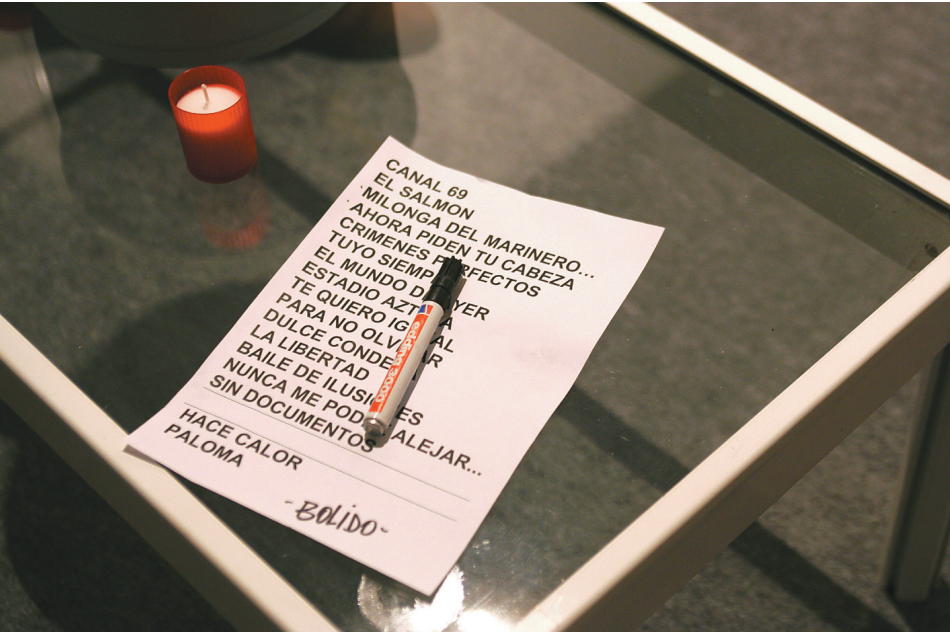 CANAL 69
EL SALMON
MILONGA DEL MARINERO...
AHORA PIDEN TU CABEZA
CRIMENES PERFECTOS
TUYO SIEMP
EL MUNDO D YER
ESTADIO AZT A
TE QUIERO IG AL
PARA NO OLV AR
DULCE CONDE
LA LIBERTAD
BAILE DE ILUSIONES
NUNCA ME POD ALEJAR...
SIN DOCUMENTOS
HACE CALOR
PALOMA
-BOLIDO-
edding 3000